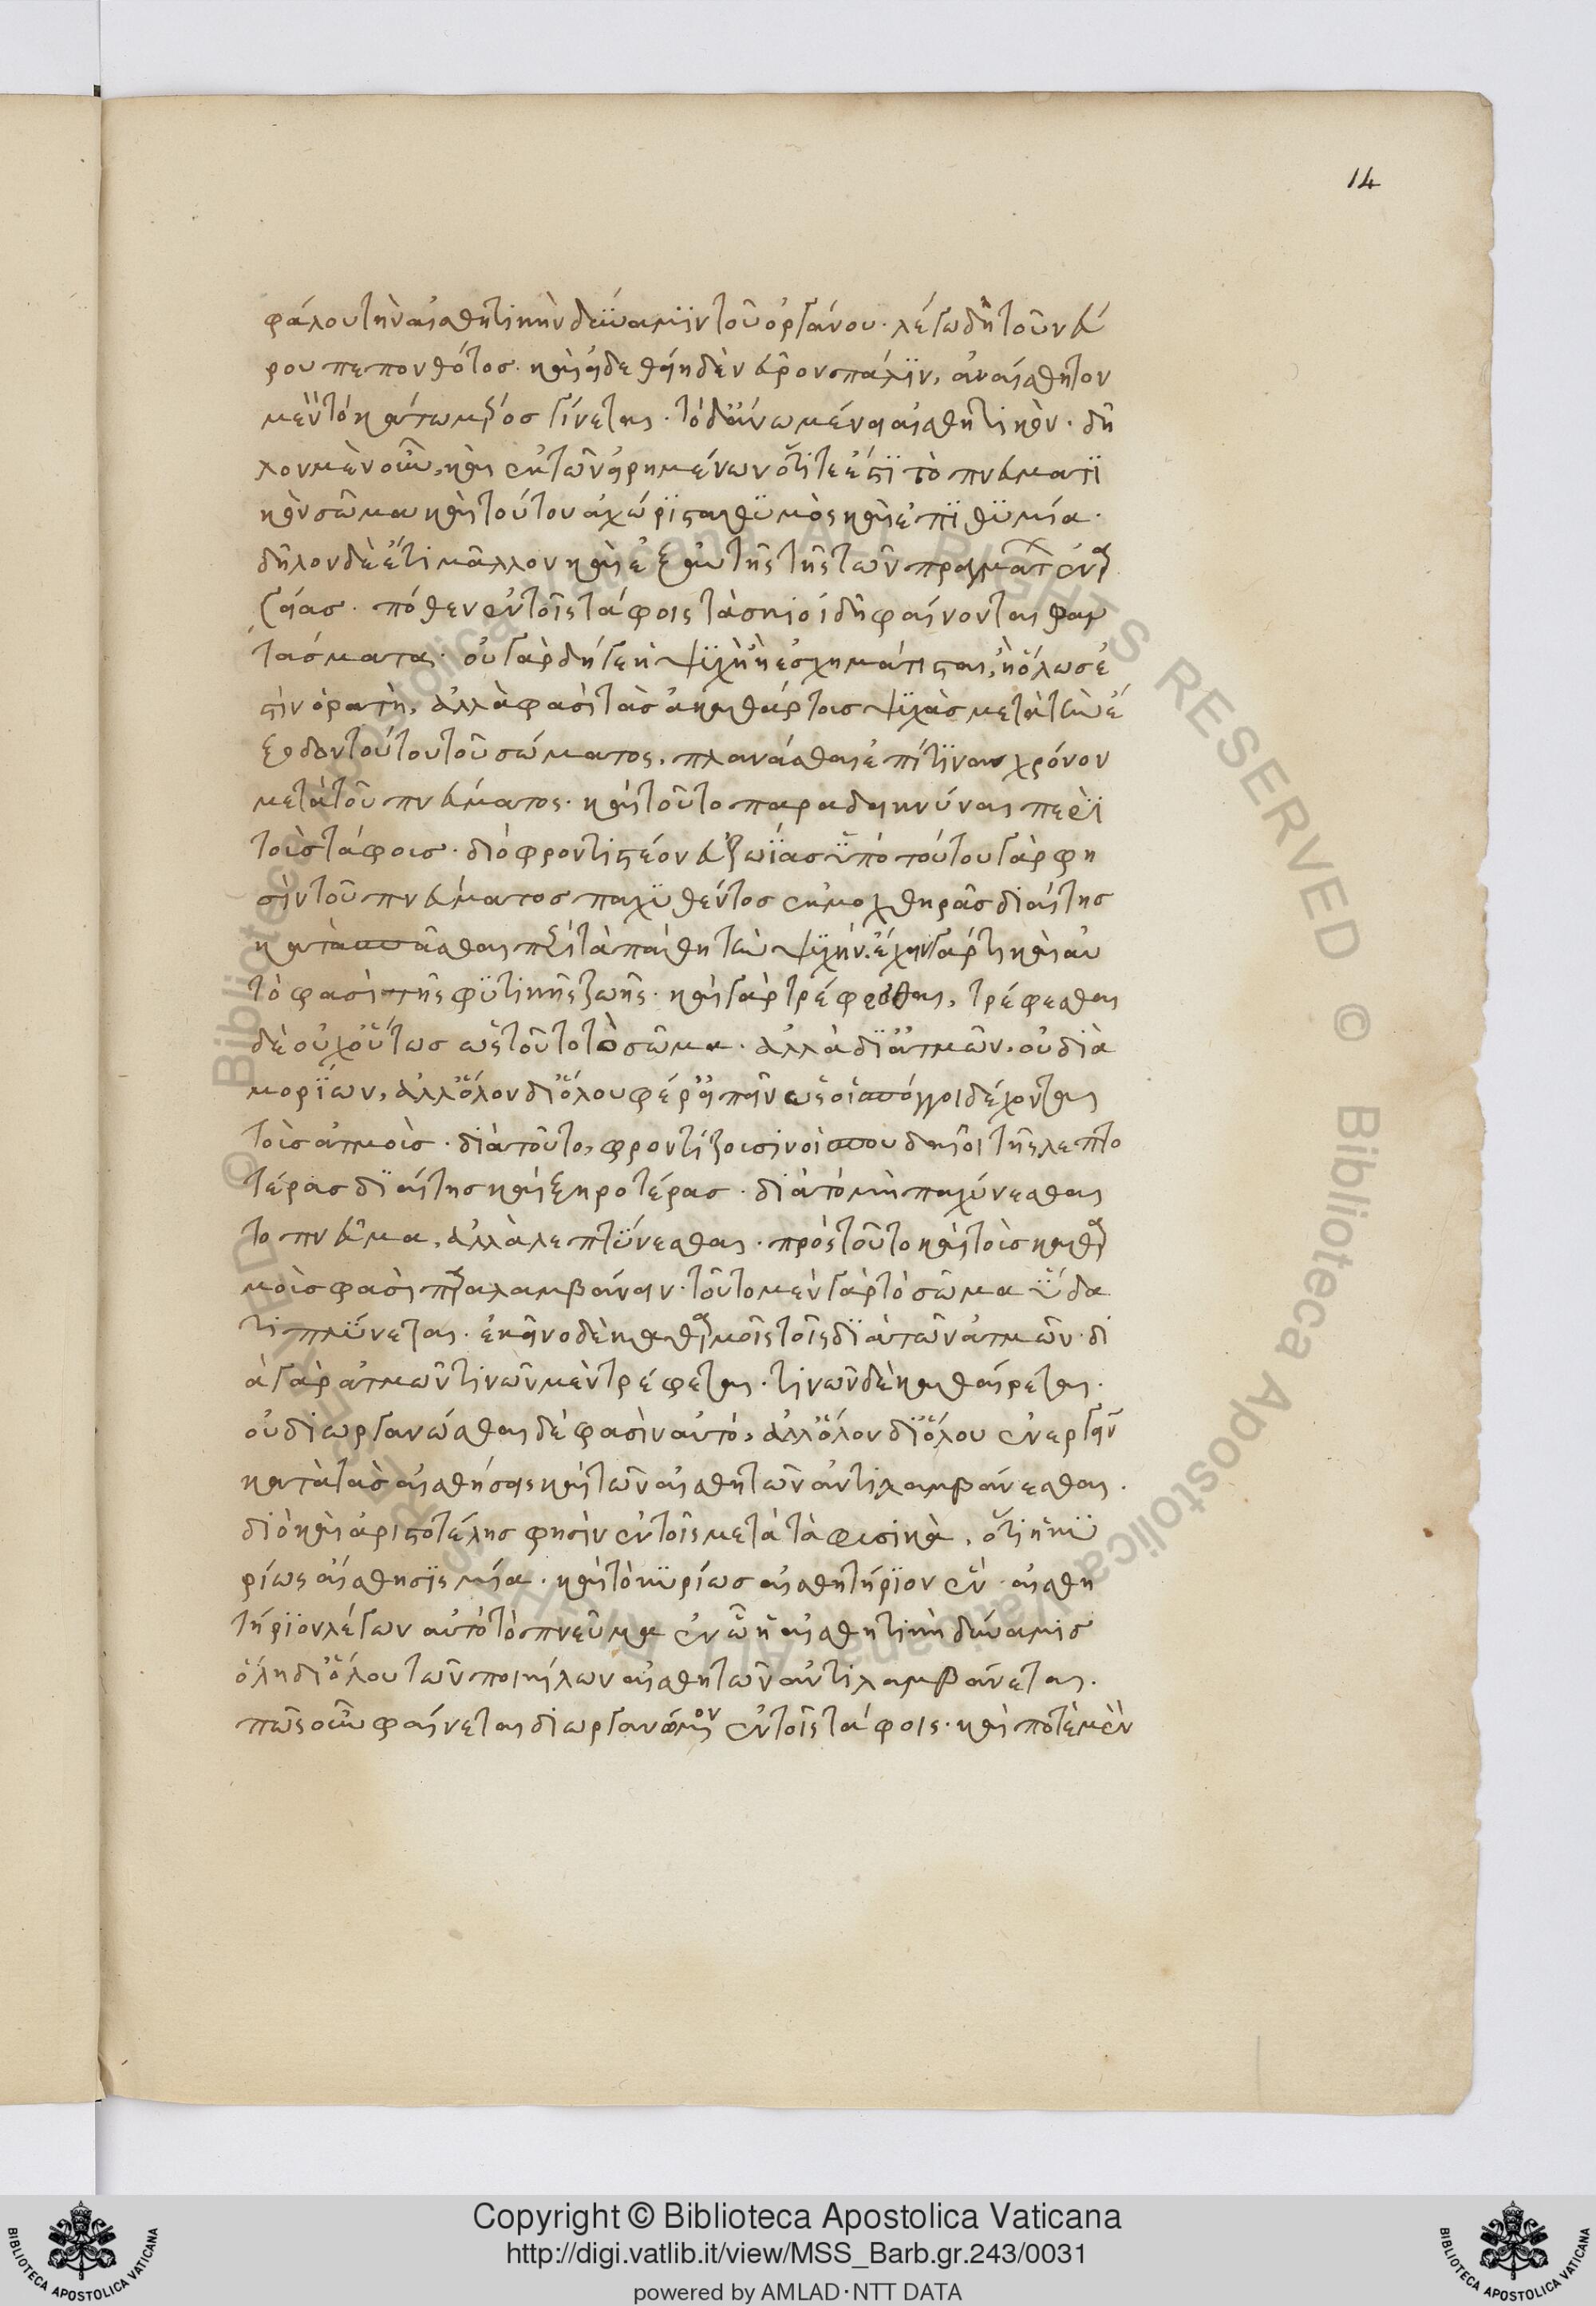 14
φάλου τὴν αἰσθητικὴν δύναμιν τοῦ ὀργάνου· λέγω δὴ τοῦ νεύ
ρου πεπονθότος· καὶ εἰ δεθείη δὲ νεῦρον πάλιν, ἀναίσθητον
μὲν τὸ κάτω μέρος γίνεται· τὸ δ' ἄνω μένει αἰσθητικὸν· δῆ
λον μὲν οὖν, καὶ ἐκ τῶν εἰρημένων ὅτι τέ ἐστι τὸ πνευματι
κὸν σῶμα καὶ τούτου ἀχώριστα θυμὸς καὶ ἐπιθυμία·
δῆλον δὲ ἔτι μᾶλλον καὶ ἐξ αὐτῆς τῆς τῶν πραγμάτ ἐνερ
γείας· πόθεν ἐν τοῖς τάφοις τὰ σκιοιδῆ φαίνονται φαν
τάσματα· οὐ γὰρ δήγε ἡ ψυχὴ ἢ ἐσχημάτισται, ἢ ὅλως ἐ
στὶν ὁρατὴ, ἀλλὰ φασὶ τὰς ἀκαθάρτοις ψυχὰς μετὰ τὴν ἔ
ξοδον τούτου τοῦ σώματος, πλανᾶσθαι ἐπί τινα χρόνον
μετὰ τοῦ πνεύματος· καὶ τοῦτο παραδεικνύναι περὶ
τοὶς τάφοις· διὸ φροντιστέον εὐζωίας ὑπὸ τούτου γάρ φη
σὶν τοῦ πνεύματος παχυθέντος ἐκ μοχθηρᾶς διαίτης
κατασπᾶσθαι περὶ τὰ πάθη τὴν ψυχήν. ἔχειν γάρ τι καὶ αὐ
τὸ φασὶ τῆς φυτικῆς ζωῆς· καὶ γὰρ τρέφεσθαι, τρέφεσθαι
δὲ οὐχ οὕτως ὡς τοῦτο τὸ σῶμα· ἀλλὰ δι' ἀτμῶν, οὐ διὰ
μορίων, ἀλλ' ὅλον δι' ὅλου φέρ' εἰπεῖν ὡς οἱ σπόγγοι δέχονται
τοὶς ἀτμοὶς· διὰ τοῦτο, φροντίζουσιν οἱ σπουδαῖοι τῆς λεπτο
τέρας διαίτης καὶ ξηροτέρας· διὰ τὸ μὴ παχύνεσθαι
το πνεῦμα, ἀλλὰ λεπτύνεσθαι· πρὸς τοῦτο καὶ τοὶς καθαρ
μοὶς φασὶ παραλαμβάνειν· τοῦτο μὲν γὰρ τὸ σῶμα ὕδα
τι πλύνεται· ἐκεῖνο δὲ καθαρμοῖς τοῖς διὰ τῶν ἀτμῶν· δι
ὰ γὰρ ἀτμῶν τινῶν μὲν τρέφεται· τινῶν δὲ καθαίρεται·
οὐ διωργανῶσθαι δὲ φασὶν αὐτό, ἀλλ' ὅλον δι' ὅλου ἐνεργεῖν
κατὰ τὰς αἰσθήσεις καὶ τῶν αἰσθητῶν ἀντιλαμβάνεσθαι·
διὸ καὶ ἀριστοτέλης φησὶν ἐν τοῖς μετὰ τὰ φυσικὰ, ὅτι ἡ κυ
ρίως αἴσθησις μία· καὶ τὸ κυρίως αἰσθητήριον ἓν· αἰσθη
τήριον λέγων αὐτὸ τὸ πνεῦμα ἐν ᾧ ἡ αἰσθητικὴ δύναμις
ὅλη δι' ὅλου τῶν ποικίλων αἰσθητῶν ἀντιλαμβάνεται·
πῶς οὖν φαίνεται διωργανωμένον ἐν τοῖς τάφοις· καὶ ποτὲ μὲν
Copyright © Biblioteca Apostolica Vaticana
http://digi.vatlib.it/view/MSS_Barb.gr.243/0031
powered by AMLAD·NTT DATA